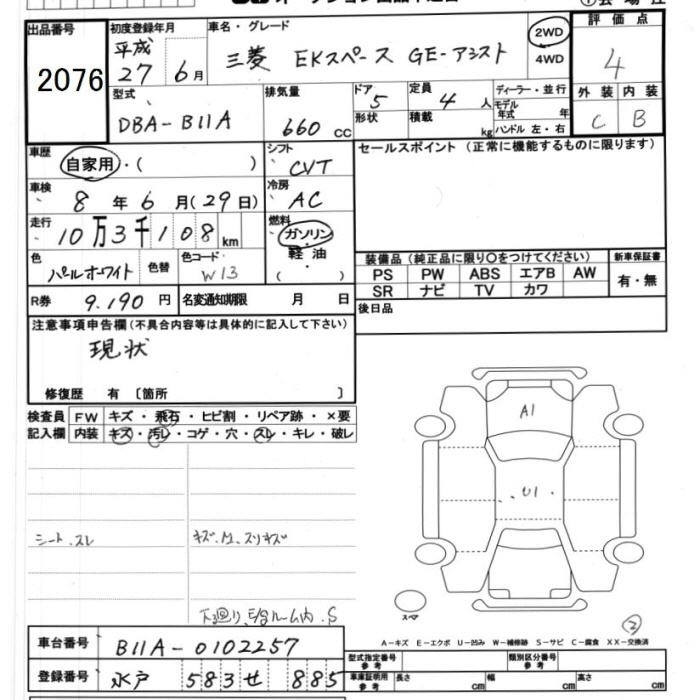 出品番号 2076
初度登録年月 平成 27 6月
車名・グレード 三菱 EKスペース GE-アシスト
2WD
4WD
評価点 4
外装 内装
C B
型式 DBA-B11A
排気量 660 CC
ドア 5
形状
定員 4 人
積載 kg
ディーラー・並行
モデル年式 年
ハンドル 左・右
車歴 自家用・( )
シフト CVT
セールスポイント(正常に機能するものに限ります)
車検 8年6月(29日)
冷房 AC
走行 10万3千108km
燃料 ガソリン・軽油・( )
色 パールホワイト 色替
色コード W13
装備品(純正品に限り○をつけてください)
PS PW ABS エアB AW
SR ナビ TV カワ
新車保証書
有・無
R券 9.190円
名変通知期限 月 日
後日品
注意事項申告欄(不具合内容等は具体的に記入して下さい)
現状
修復歴 有〔箇所 〕
検査員記入欄
FW キズ・飛石・ヒビ割・リペア跡・×要
内装 キズ・汚レ・コゲ・穴・スレ・キレ・破レ
A1
U1
シート.スレ
スペア
2
A-キズ E-エクボ U-凹み W-補修跡 S-サビ C-腐食 XX-交換済
車台番号 B11A-0102257
登録番号 水戸 583 せ 885
型式指定番号
類別区分番号
車庫証明用参考
長さ cm 幅 cm 高さ cm